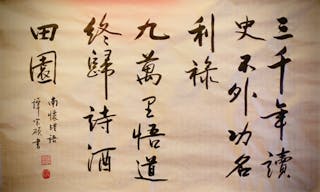 三千年讀
史不外功名
利祿
九萬里悟道
終歸詩酒
田園
南懷瑾語
譚宗硕書